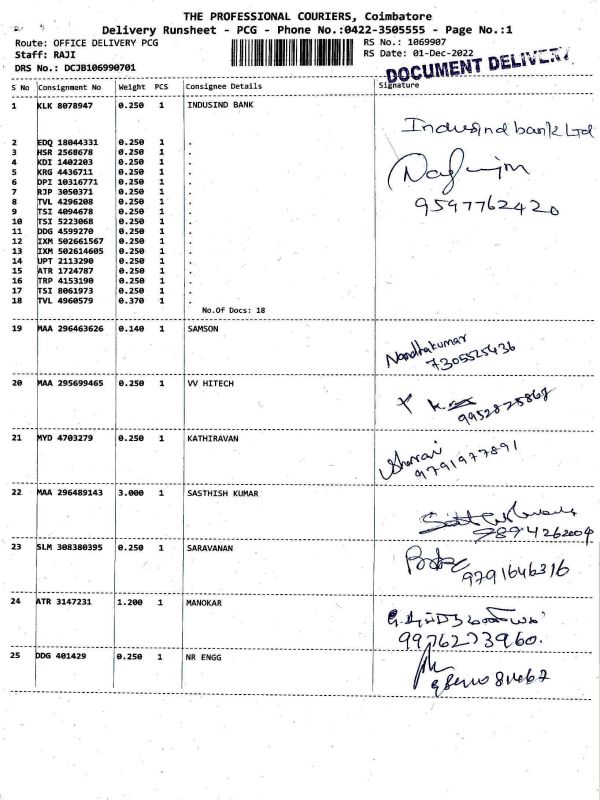 THE PROFESSIONAL COURIERS, Coimbatore
Delivery Runsheet - PCG - Phone No.:0422-3505555 - Page No.:1
Route: OFFICE DELIVERY PCG RS No.: 1069907
Staff: RAJI RS Date: 01-Dec-2022
DRS No.: DCJB106990701
DOCUMENT DELIVERY
S No Consignment No Weight PCS Consignee Details Signature
1 KLK 8078947 0.250 1 INDUSIND BANK
Indusind bank Ltd
2 EDQ 18044331 0.250 1 .
3 HSR 2568678 0.250 1 .
4 KDI 1402203 0.250 1 .
5 KRG 4436711 0.250 1 .
6 DPI 10316771 0.250 1 .
7 RJP 3050371 0.250 1 .
8 TVL 4296208 0.250 1 .
9 TSI 4094678 0.250 1 . 9597762420
10 TSI 5223068 0.250 1 .
11 DDG 4599270 0.250 1 .
12 IXM 502661567 0.250 1 .
13 IXM 502614605 0.250 1 .
14 UPT 2113290 0.250 1 .
15 ATR 1724787 0.250 1 .
16 TRP 4153190 0.250 1 .
17 TSI 8061973 0.250 1 .
18 TVL 4960579 0.370 1 .
No.Of Docs: 18
19 MAA 296463626 0.140 1 SAMSON
Nandhakumar
7305525436
20 MAA 295699465 0.250 1 VV HITECH
9952875867
21 MYD 4703279 0.250 1 KATHIRAVAN
9791977891
22 MAA 296489143 3.000 1 SASTHISH KUMAR
9894262004
23 SLM 308380395 0.250 1 SARAVANAN
9791646316
24 ATR 3147231 1.200 1 MANOKAR
9976273960.
25 DDG 401429 0.250 1 NR ENGG